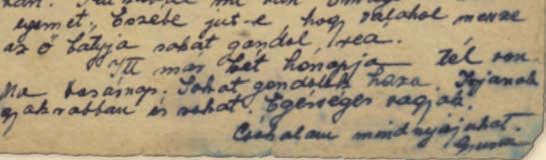 egemet; Eszébe jut-e, hogy valahol messze
az ő bátyja sokat gondol reá.
Itt már két hónapja tél van.
Ma vasárnap. Sokat gondolok haza. Irjanak
gyakrabban és sokat. Egésséges vagyok.
Csókolom mindnyájukat.